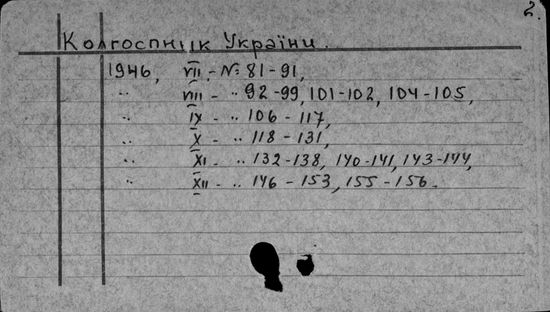 2.
Колгоспник України.
1946, VII - № 81-91,
" VIII - " 92-99, 101-102, 104-105,
" IX - " 106-117,
" X - " 118-131,
" XI - " 132-138, 140-141, 143-144,
" XII - " 146-153, 155-156.